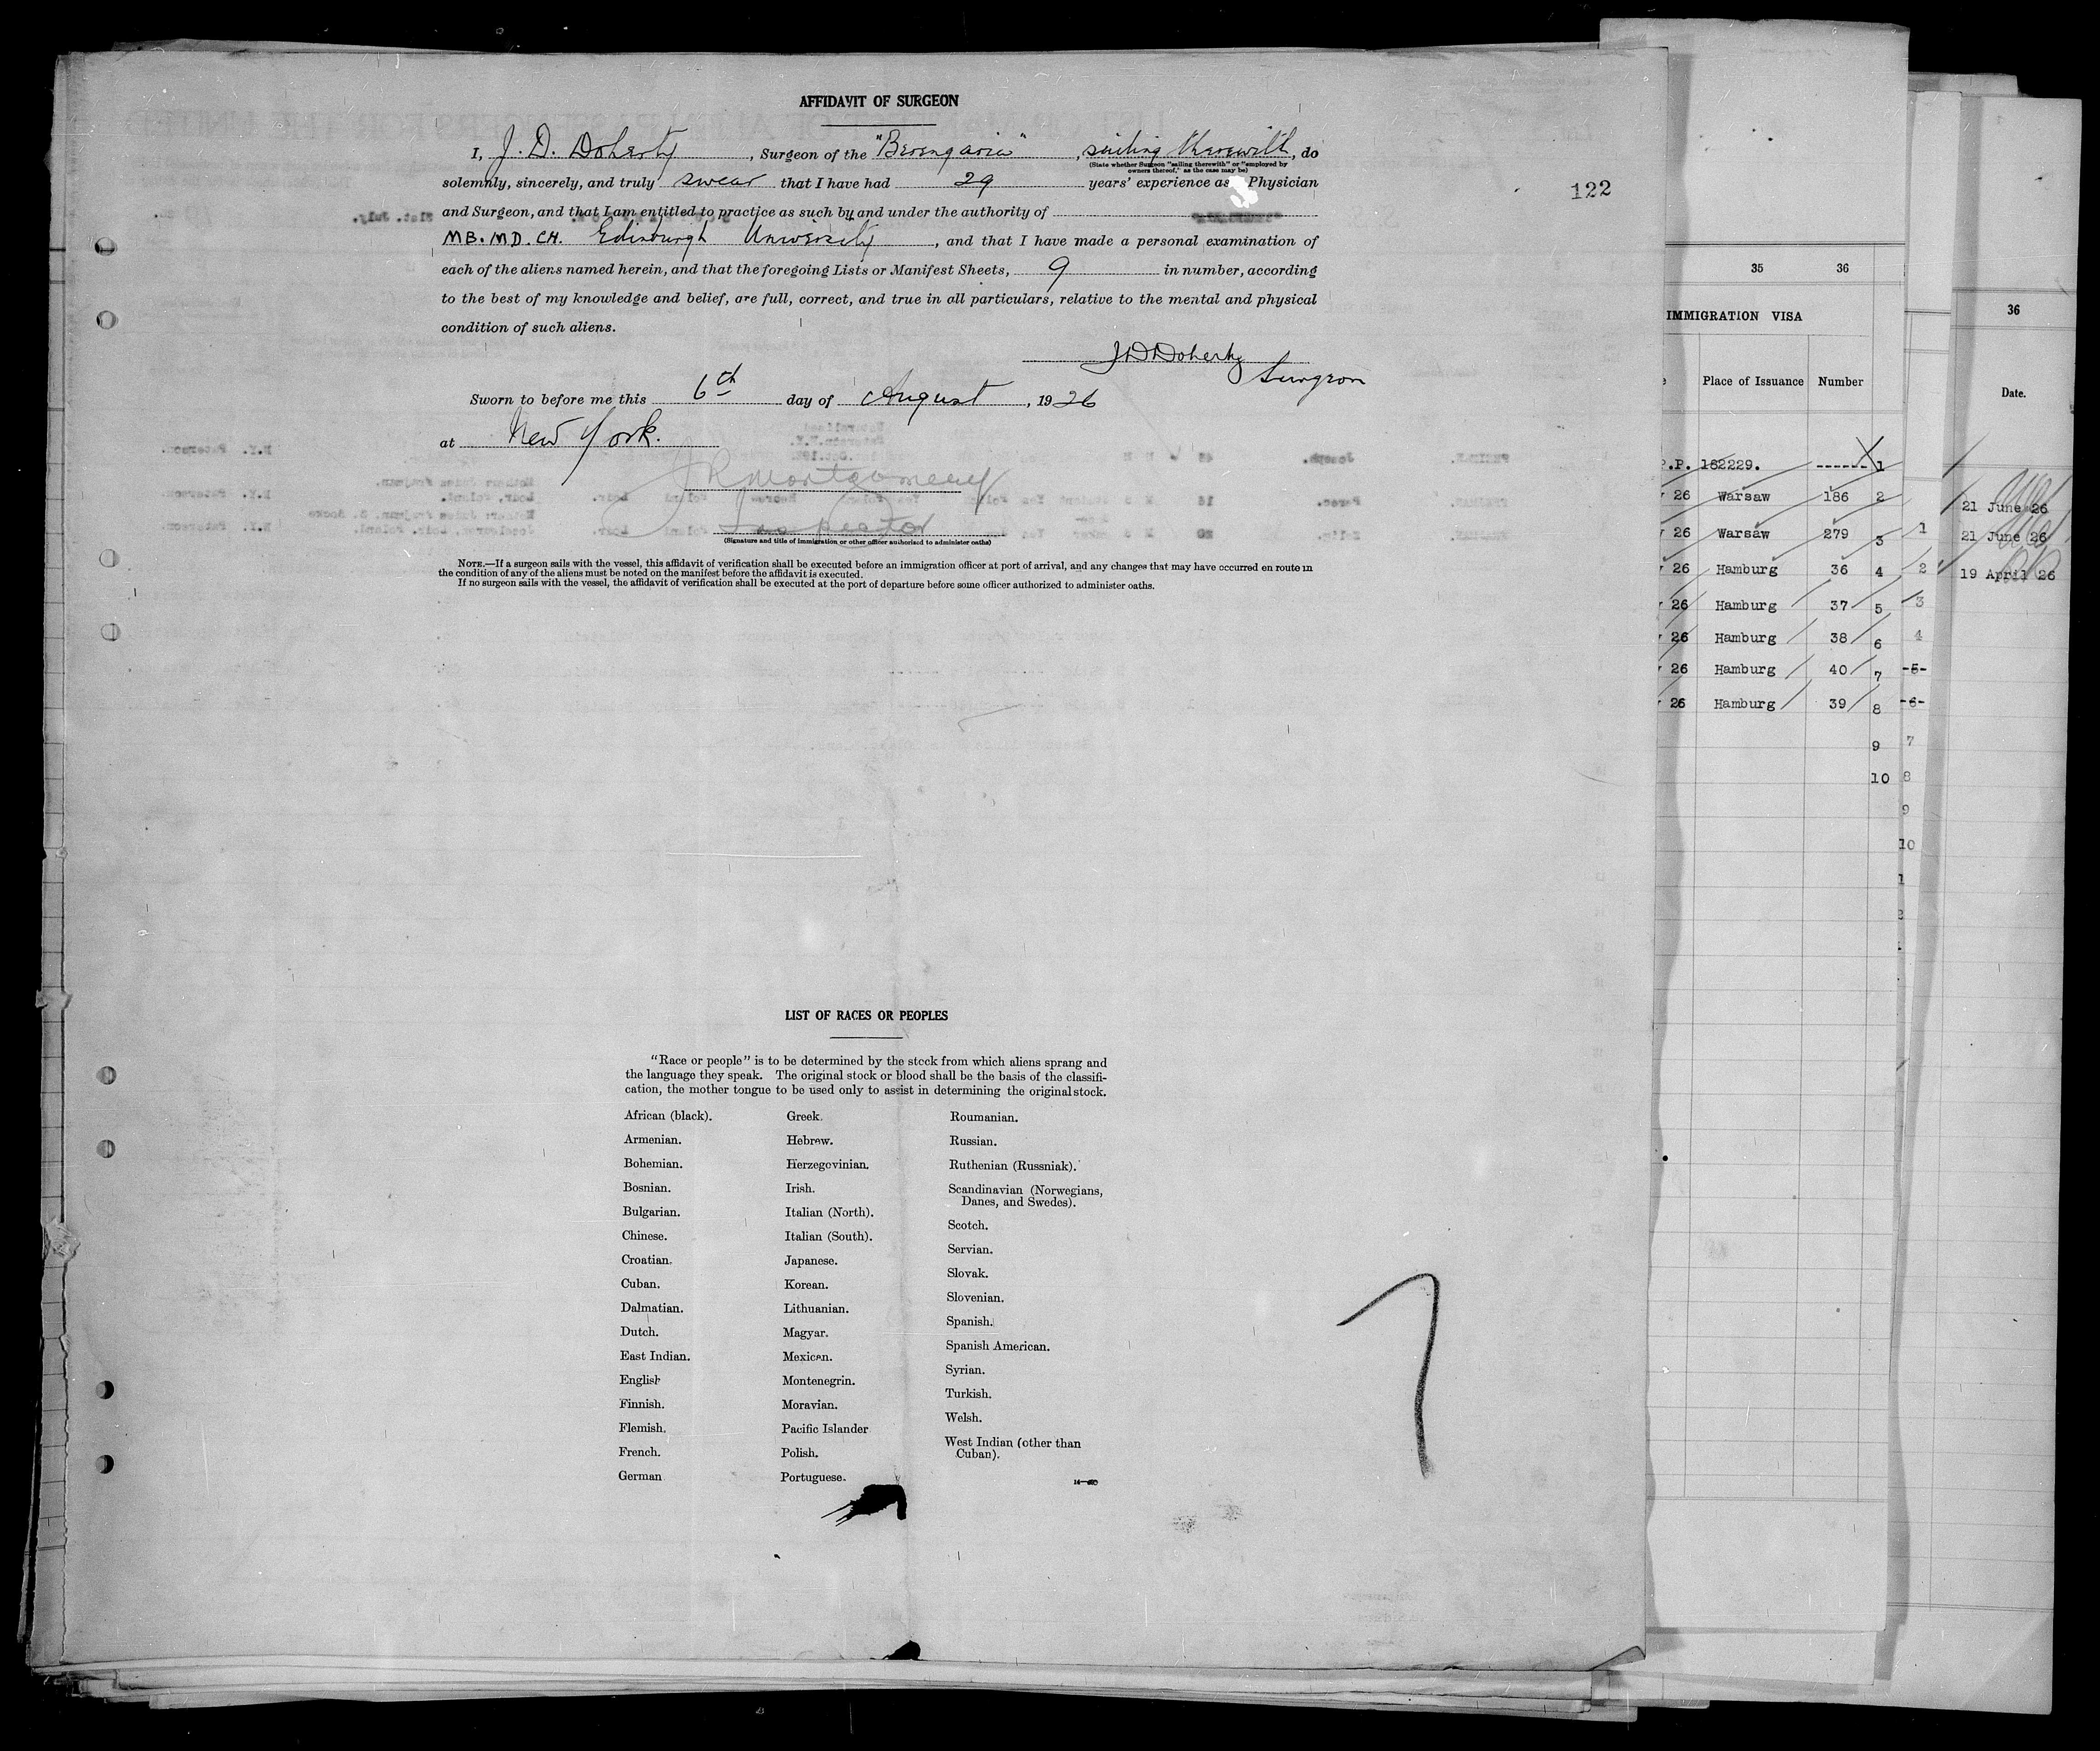 AFFIDAVIT OF SURGEON
I, J. D. Doherty, Surgeon of the "Berengaria", sailing therewith, do
(State whether Surgeon "sailing therewith" or "employed by
owners thereof," as the case may be)
solemnly, sincerely, and truly swear that I have had 29 years' experience as Physician
and Surgeon, and that I am entitled to practice as such by and under the authority of
MB. MD. CH. Edinburgh University, and that I have made a personal examination of
each of the aliens named herein, and that the foregoing Lists or Manifest Sheets, 9 in number, according
to the best of my knowledge and belief, are full, correct, and true in all particulars, relative to the mental and physical
condition of such aliens.
J D Doherty
Surgeon
Sworn to before me this 6th day of August, 1926
at New York.
J R Montgomery
Inspector
(Signature and title of immigration or other officer authorized to administer oaths)
NOTE.—If a surgeon sails with the vessel, this affidavit of verification shall be executed before an immigration officer at port of arrival, and any changes that may have occurred en route in
the condition of any of the aliens must be noted on the manifest before the affidavit is executed.
If no surgeon sails with the vessel, the affidavit of verification shall be executed at the port of departure before some officer authorized to administer oaths.
122
LIST OF RACES OR PEOPLES
"Race or people" is to be determined by the stock from which aliens sprang and
the language they speak. The original stock or blood shall be the basis of the classifi-
cation, the mother tongue to be used only to assist in determining the original stock.
African (black).
Armenian.
Bohemian.
Bosnian.
Bulgarian.
Chinese.
Croatian.
Cuban.
Dalmatian.
Dutch.
East Indian.
English
Finnish.
Flemish.
French.
German
Greek.
Hebrew.
Herzegovinian.
Irish.
Italian (North).
Italian (South).
Japanese.
Korean.
Lithuanian.
Magyar.
Mexican.
Montenegrin.
Moravian.
Pacific Islander
Polish.
Portuguese.
Roumanian.
Russian.
Ruthenian (Russniak).
Scandinavian (Norwegians,
Danes, and Swedes).
Scotch.
Servian.
Slovak.
Slovenian.
Spanish.
Spanish American.
Syrian.
Turkish.
Welsh.
West Indian (other than
Cuban).
35 36
IMMIGRATION VISA
Place of Issuance Number
P.P. 162229. ------ 1
26 Warsaw 186 2
26 Warsaw 279 3
26 Hamburg 36 4
26 Hamburg 37 5
26 Hamburg 38 6
26 Hamburg 40 7
26 Hamburg 39 8
9
10
1
2
3
4
-5-
-6-
7
8
9
10
36
Date.
21 June 26
21 June 26
19 April 26